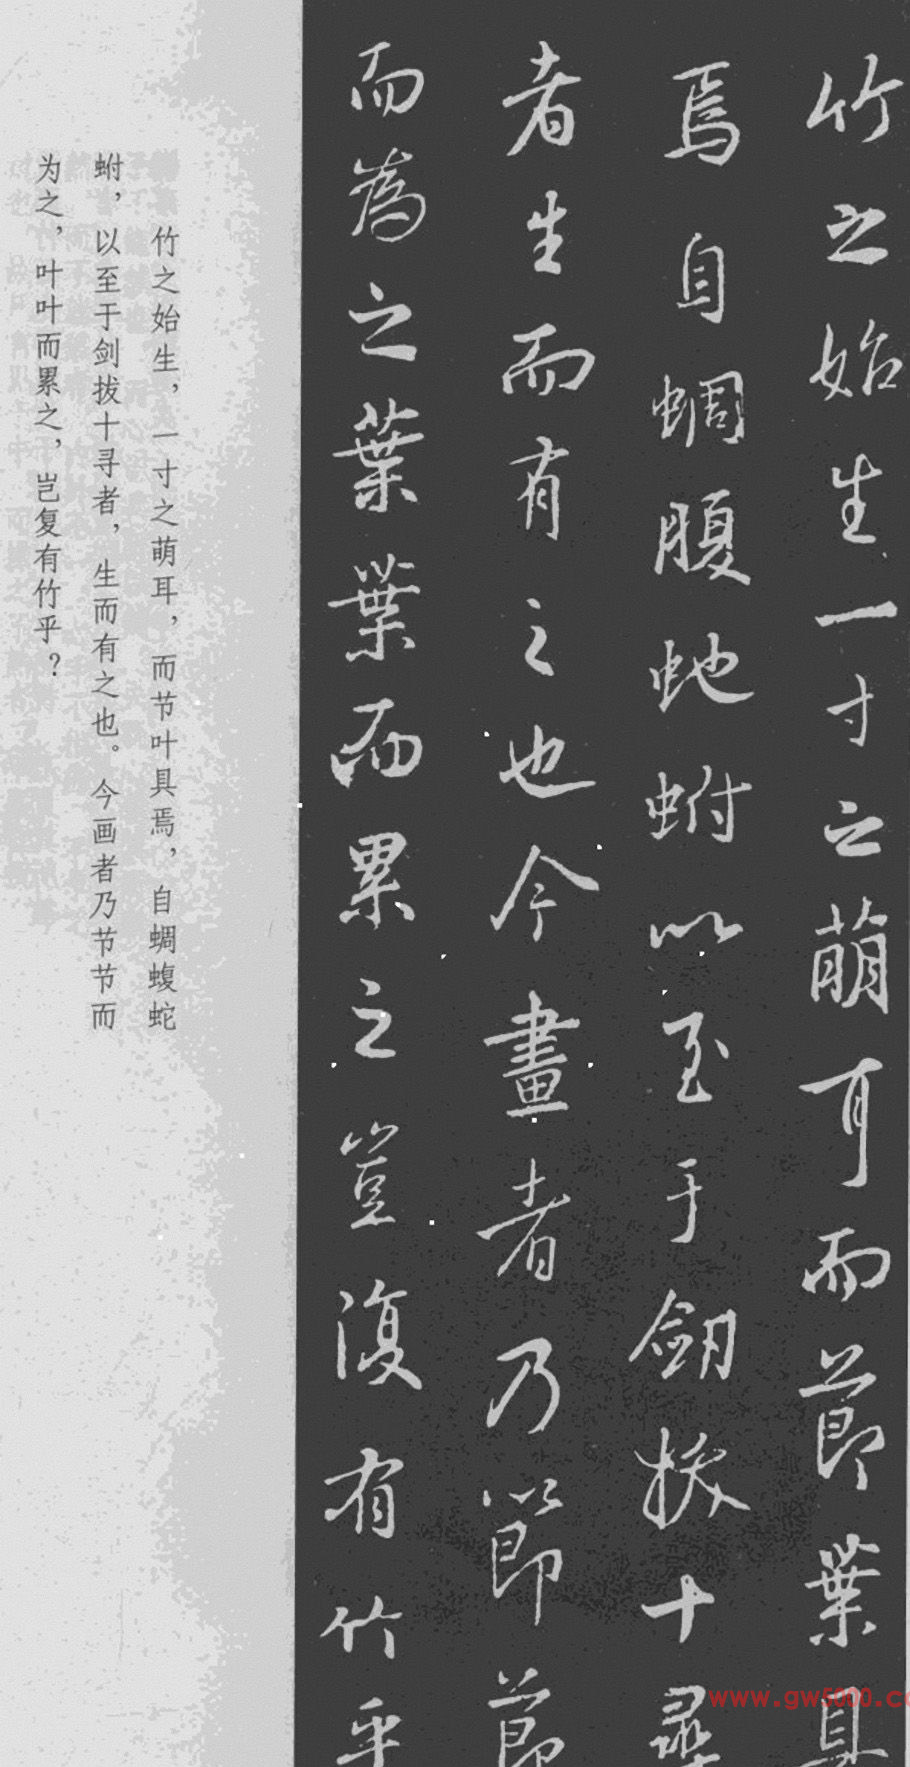 竹之始生一寸之萌耳而節葉具
焉自蜩腹虵蚹以至于劒拔十尋
者生而有之也今畫者乃節節
而為之葉葉而累之豈復有竹乎
竹之始生，一寸之萌耳，而节叶具焉，自蜩蝮蛇
蚹，以至于剑拔十寻者，生而有之也。今画者乃节节而
为之，叶叶而累之，岂复有竹乎？
www.gw5000.co